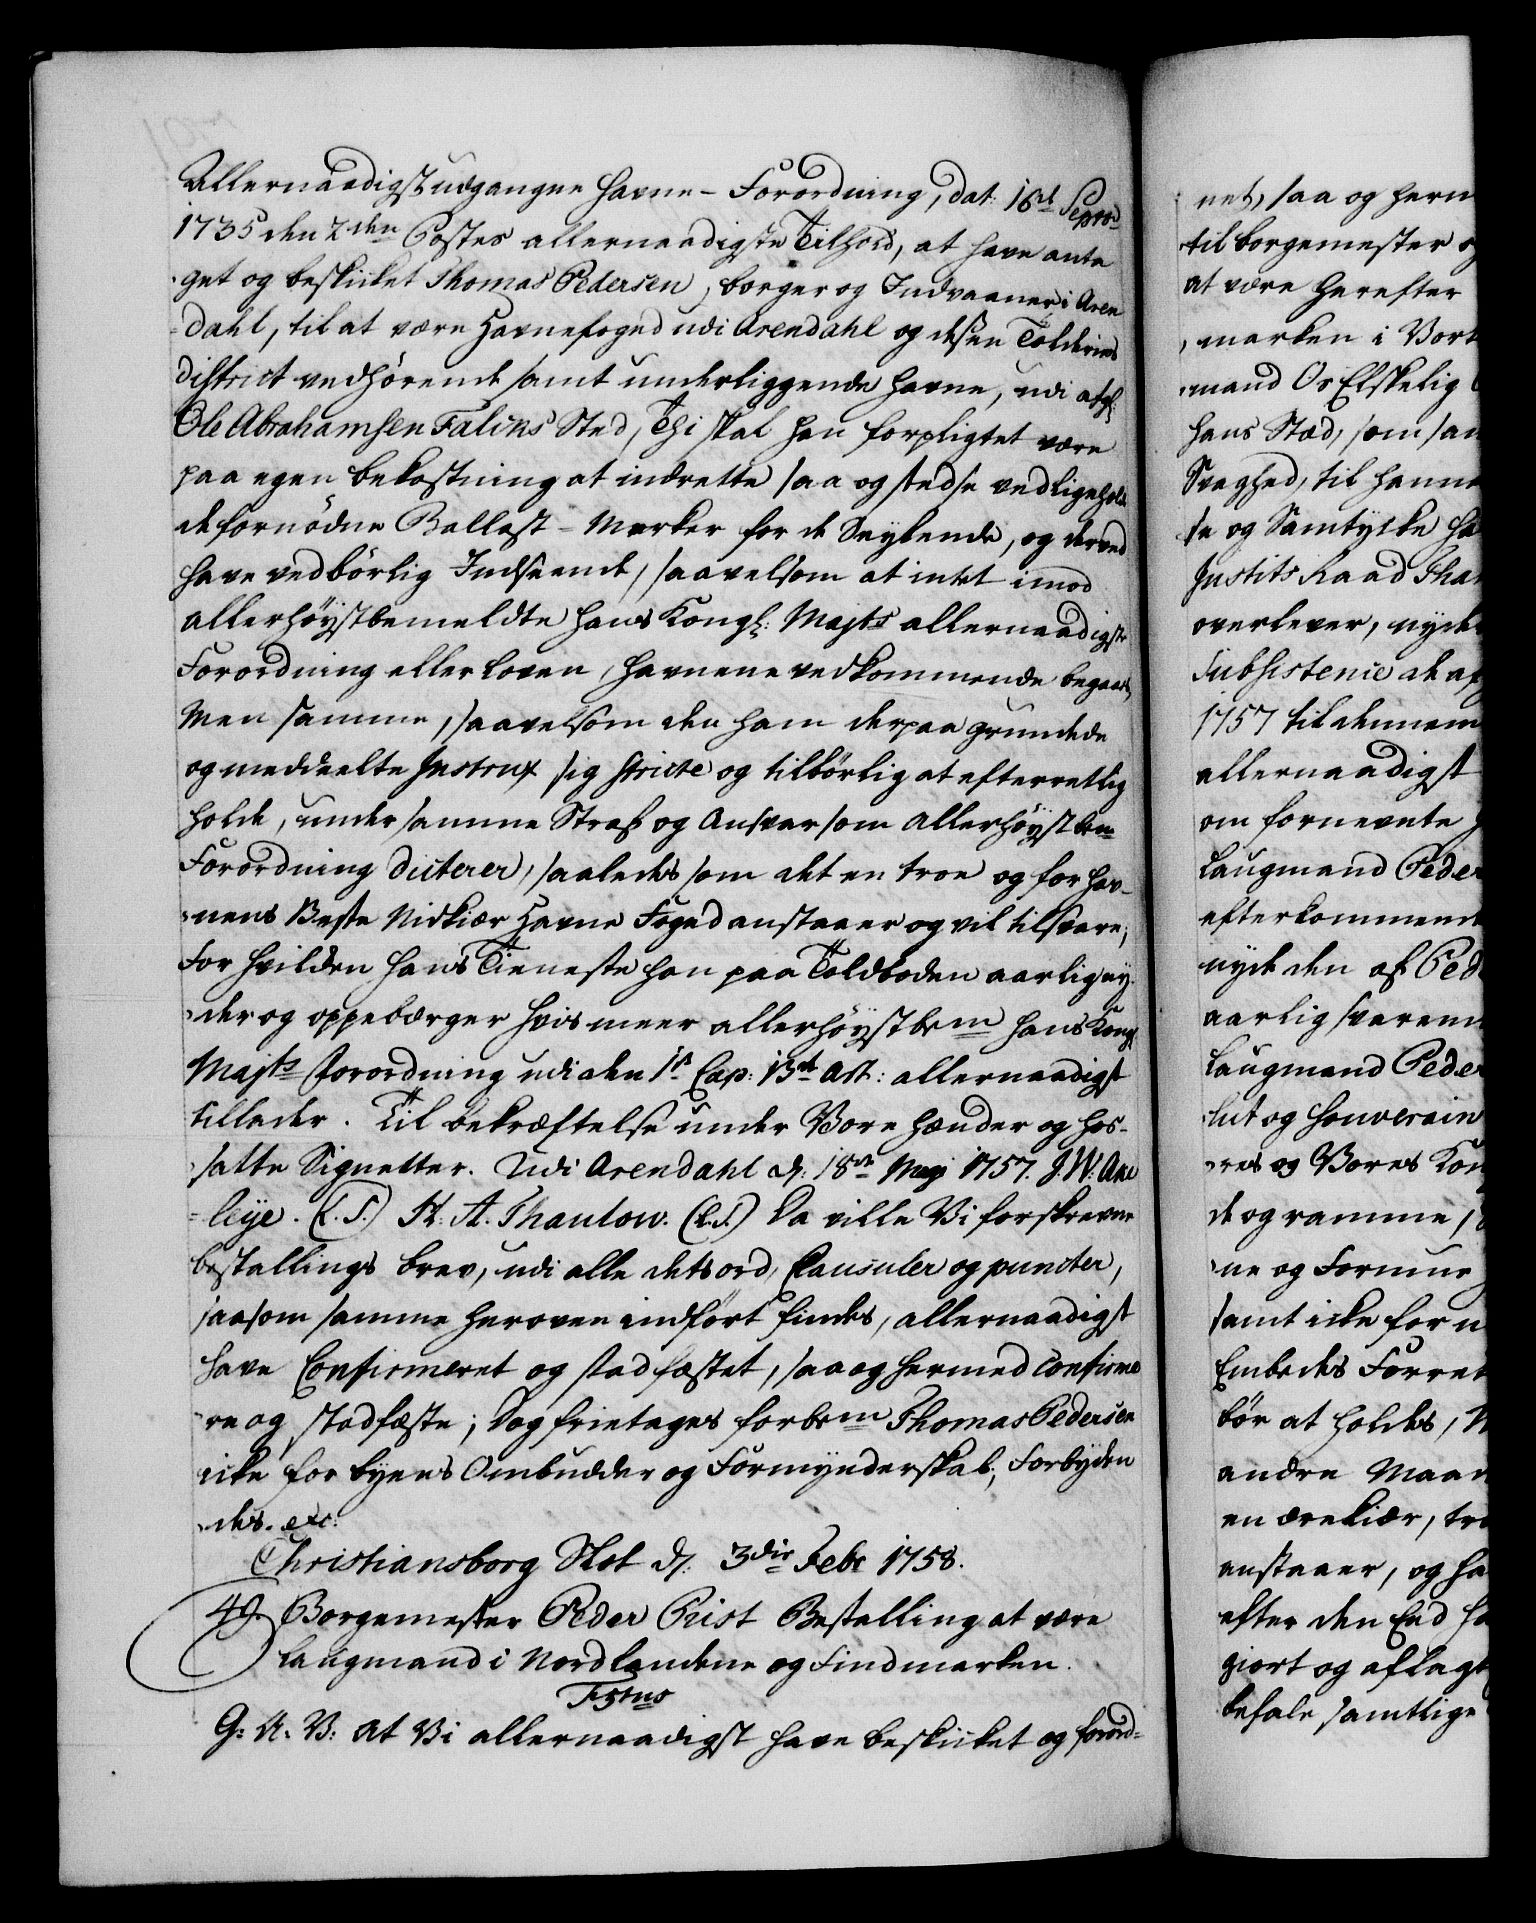 Allernaadigst udgangne Havne-Forordning, dat: 16d Septr
1735 den 2den Postes allernaadigste Tilhold, at have anta
get og beskicket Thomas Pedersen, borger og Indvaaner i Aren
dahl, til at være Havnefoged udi Arendahl og dessen Tolderies
District vedhørende samt underliggende Havne, udi afgl:
Ole Abrahamsen Falcks Sted, Thi skal han forpligtet være
paa egen bekostning at indrette saa og stedse vedligeholde
de fornødne Ballast-Merker for de Seylende, og derved
have vedbørlig Indseende, saavelsom at intet imod
allerhøystbemeldte Hans Kongl: Majts allernaadigste
Forordning eller Loven, Havnene vedkommende begaaes,
Men samme, saavelsom den ham derpaa grundede
og meddeelte Instrux sig stricte og tilbørlig at efterretlig
holde, under samme Straf og Ansvar som Allerhøyst bem
Forordning dicterer, saaledes som det en troe og for Hav-
nens Beste Nidkiær Havne Foged anstaaer og vil tilsvare;
For hvilcken hans Tieneste han paa Toldboden aarlig ny-
der og oppebærger hvis meer allerhøystbem Hans Kongl
Majts Forordning udi den 1st Cap: 13de Art: allernaadigst
tillader. Til bekræftelse under Vore Hænder og hos-
satte Signetter. Udi Arendahl d: 18de Maji 1757. J. W. Ane
leye. (L.S.) H. A. Thaulow. (L.S.) Da ville Vi forskrevne
bestallings brev, udi alle dets ord, Clausuler og puncter,
saasom samme heroven indført findes, allernaadigst
have Confirmeret og stadfæstet, saa og hermed Confirme
re og stadfæste; Dog frietages forbem Thomas Pedersen
icke for byens Ombudder og Formynderskab; Forbyden
des. etc:
Christiansborg Slot d: 3die Febr 1758.
49. Borgemester Peder Qvist Bestalling at være
Laugmand i Nordlandene og Findmarken.
F5tus
G: A: V: at Vi allernaadigst have beskicket og forord-
net, saa og herm
til borgemester og
at være herefter
marken i Vort
mand Os Elskelig
hans Stæd, som san
Svaghed, til hanne
se og Samtykke ha
Justits Raad That
overlever, nyde
Subsistence de af
1757 til dennem
allernaadigst
om fornevnte
Laugmand Peder
efterkommend
nyde den af Ped
aarlig svarend
Laugmand Peder
lut og Souverain
res og Vores Kon
de og ramme,
ne og Formue
samt icke for n
Embedes Forret
bør at holdes, N
andre Maan
en ærekiær, tro
anstaaer, og ha
efter den Eed ha
giort og aflagt
befale samtlige